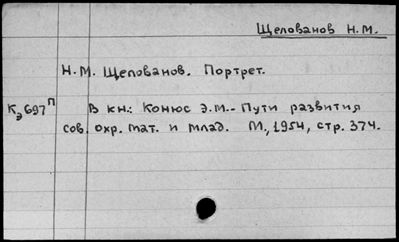 Щелованов Н.М.
Н.М. Щелованов. Портрет.
Кэ697П В кн.: Конюс Э.М. - Пути развития
сов. охр. мат. и млад. М., 1954, стр. 374.